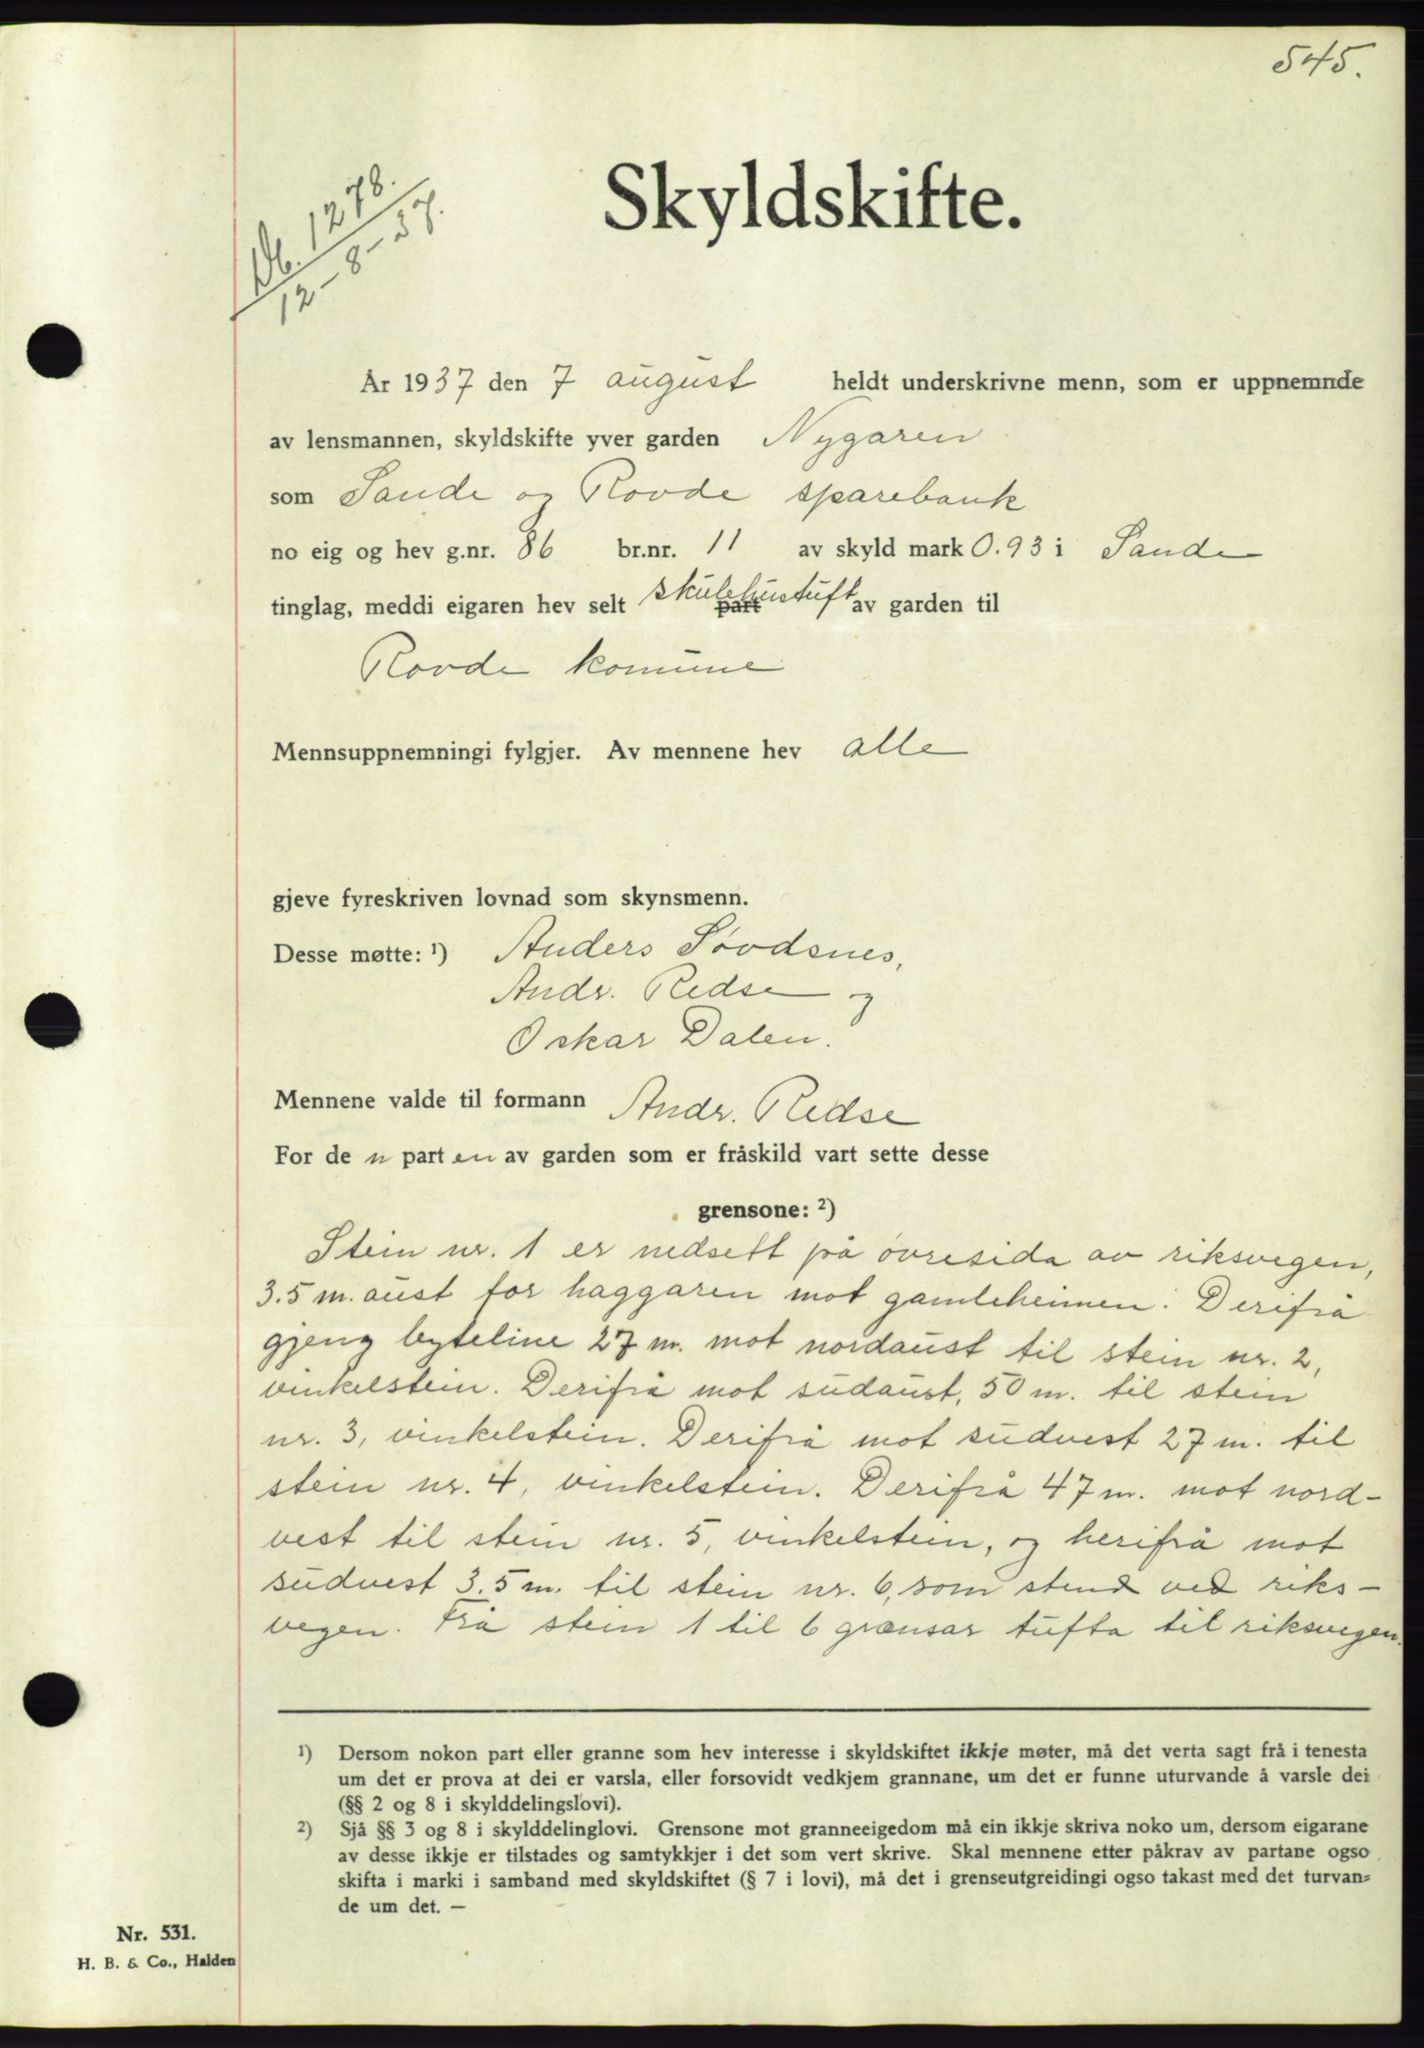 545.
Db. 1278.
12-8-37.
Skyldskifte.
År 1937 den 7 august heldt underskrivne menn, som er uppnemnde
av lensmannen, skyldskifte yver garden Nygaren
som Sande og Rovde sparebank
no eig og hev g.nr. 86 br.nr. 11 av skyld mark 0.93 i Sande
tinglag, meddi eigaren hev selt skulehustuft part av garden til
Rovde komune
Mennsuppnemningi fylgjer. Av mennene hev alle
gjeve fyreskriven lovnad som skynsmenn.
Desse møtte: ¹) Anders Sovdsnes,
Andr. Redse og
Oskar Dalen.
Mennene valde til formann Andr. Redse
For de n part en av garden som er fråskild vart sette desse
grensone: ²)
Stein nr. 1 er nedsett på øvresida av riksvegen,
3.5 m. aust for haggaren mot gamleheimen. Derifrå
gjeng byteline 27 m. mot nordaust til stein nr. 2,
vinkelstein. Derifrå mot sudaust, 50 m. til stein
nr. 3, vinkelstein. Derifrå mot sudvest 27 m. til
stein nr. 4, vinkelstein. Derifrå 47 m. mot nord-
vest til stein nr. 5, vinkelstein, og herifrå mot
sudvest 3.5 m. til stein nr. 6, som stend ved riks-
vegen. Frå stein 1 til 6 grænsar tufta til riksvegen.
¹) Dersom nokon part eller granne som hev interesse i skyldskiftet ikkje møter, må det verta sagt frå i tenesta
um det er prova at dei er varsla, eller forsovidt vedkjem grannane, um det er funne uturvande å varsle dei
(§§ 2 og 8 i skylddelingslovi).
²) Sjå §§ 3 og 8 i skylddelinglovi. Grensone mot granneeigedom må ein ikkje skriva noko um, dersom eigarane
av desse ikkje er tilstades og samtykkjer i det som vert skrive. Skal mennene etter påkrav av partane ogso
skifta i marki i samband med skyldskiftet (§ 7 i lovi), må det i grenseutgreidingi ogso takast med det turvan=
de um det. —
Nr. 531.
H. B. & Co., Halden